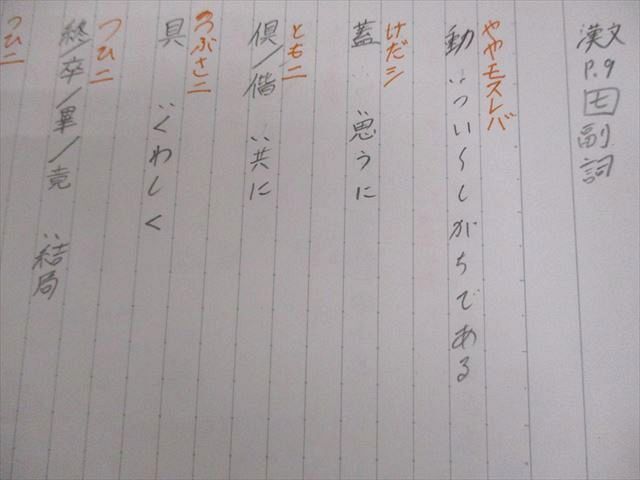 漢文 P.9 囲 副詞
ややモスレバ
動 ∵つい〜しがちである
けだシ
蓋 ∵思うに
ともニ
倶/偕 ∵共に
つぶさニ
具 ∵くわしく
つひニ
終/卒/畢/竟 ∵結局
つひニ